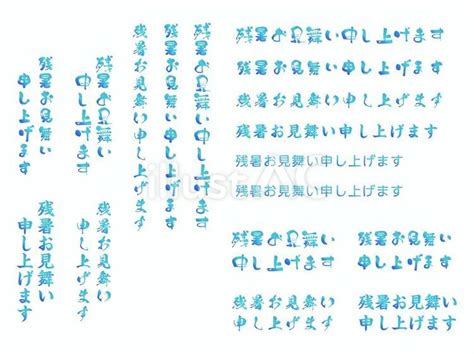 残暑お見舞い
申し上げます
残暑お見舞い
申し上げます
残暑お見舞い申し上げます
残暑お見舞い申し上げます
残暑お見舞い申し上げます
残暑お見舞い申し上げます
残暑お見舞い申し上げます
残暑お見舞い申し上げます
残暑お見舞い申し上げます
残暑お見舞い申し上げます
残暑お見舞い申し上げます
残暑お見舞い
申し上げます
残暑お見舞い
申し上げます
残暑お見舞い
申し上げます
残暑お見舞い
申し上げます
残暑お見舞い
申し上げます
残暑お見舞い
申し上げます
illustAC